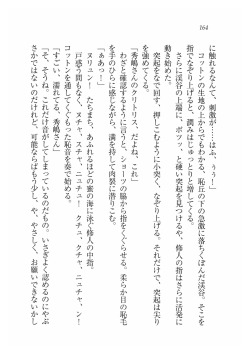 164
に触れるなんて、刺激が……はふ、ぅぅ！」
コットンの生地の上からでもわかる、恥丘の下の急激に落ちくぼんだ渓谷。そこを
指でなぞり上げると、潤みはじゅっとりと増してくる。
さらに渓谷の上端に、ポツッ、と硬い突起を見つけるや、修人の指はさらに活発に
動き始めた。
突起をなで回す、押しこむように小突く、なぞり上げる。それだけで、突起は尖り
を強めてくる。
「秀嶋さんのクリトリス、だよね、これ」
わざと確認するように言うと、ショーツの脇から指をくぐらせる。柔らか目の恥毛
を手のひらに感じながら、溝を押して肉裂に潜りこむ。
「ああっ！」
ヌリュン！　たちまち、あふれるほどの蜜の海に泳ぐ修人の中指。
戸惑う間もなく、ヌチャ、スチャ、ニュチュ！　クチュ、クチャ、ニュチャ、ン！
コットンを通してくぐもった恥音を奏で始める。
「すごい、濡れてるよ、秀嶋さん」
「そ、そうね。これだけ音がしてしまっているものの。いさぎよく認めるのにやぶ
さかではないのだけれど、可能ならばもう少し、や、やさしく、お願いできないかし